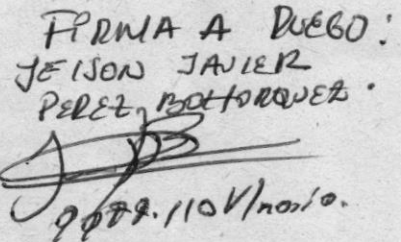 FIRMA A RUEGO:
JEISON JAVIER
PEREZ BOHORQUEZ.